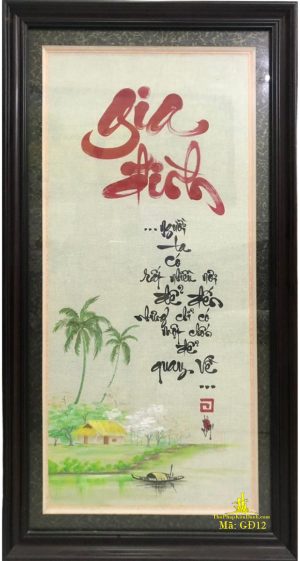 Gia
đình
...người
ta
có
rất nhiều nơi
để đến
nhưng chỉ có
một chốn
để
quay về
...
ThuPhapKimDanh.com
Mã: GĐ12